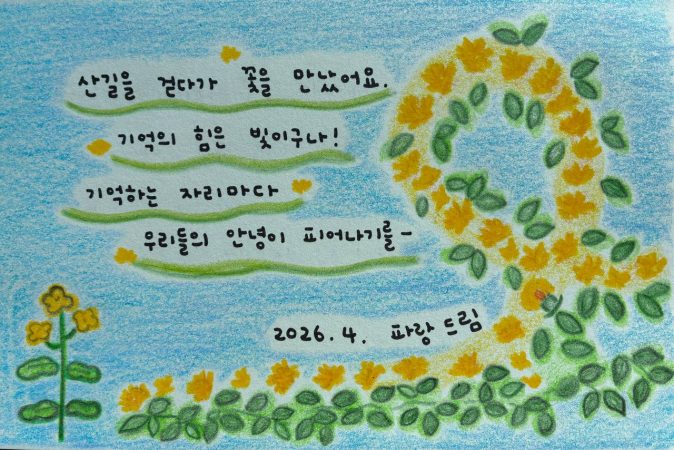 산길을 걷다가 꽃을 만났어요.
기억의 힘은 빛이구나!
기억하는 자리마다
우리들의 안녕이 피어나기를-
2026.4. 파랑 드림